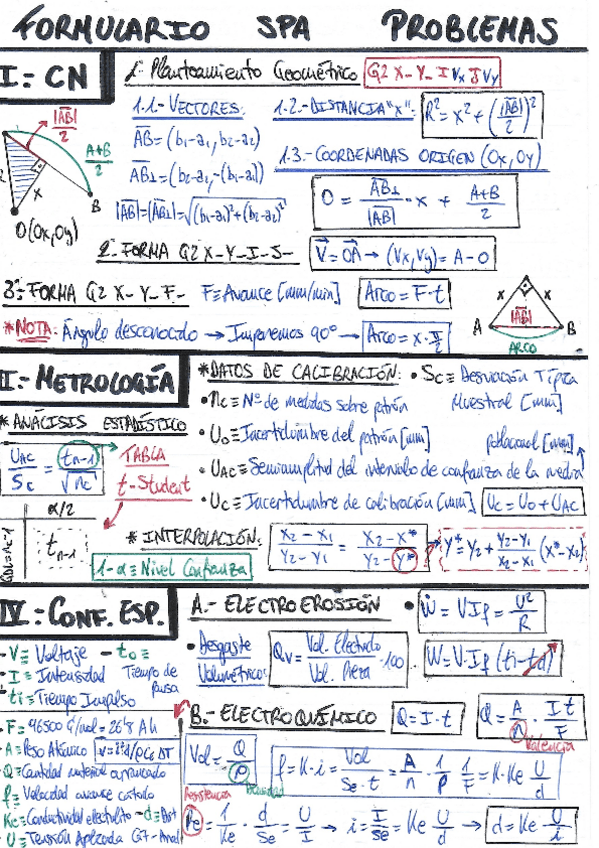 FORMULARIO SPA PROBLEMAS
I:- CN
1º Planteamiento Geométrico G2 X_ Y_ I Vx J Vy
1.1.- VECTORES:
AB = (b1-a1, b2-a2)
AB⊥ = (b2-a2, -(b1-a1))
|AB| = |AB⊥| = √((b1-a1)²+(b2-a2)²)
1.2.- DISTANCIA "X": R² = x² + (|AB|/2)²
1.3.- COORDENADAS ORIGEN (Ox, Oy)
O = AB⊥/|AB| · x + A+B/2
|AB|/2
A+B/2
x
B
O(Ox, Oy)
2º- FORMA G2 X_ Y_ I_ J_ V = OA → (Vx, Vy) = A - O
3º- FORMA G2 X_ Y_ F_ F ≡ Avance [mm/min] Arco = F·t
*NOTA: Ángulo desconocido → Imponemos 90° → Arco = x·π/2
x x
A |AB| B
ARCO
II:- METROLOGÍA
* ANÁLISIS ESTADÍSTICO
UAC/Sc = tn-1/√nc
TABLA
t-Student
α/2
tn-1
GDL = nc-1
1-α ≡ Nivel Confianza
*DATOS DE CALIBRACIÓN: • Sc ≡ Desviación Típica
Muestral [mm]
• nc ≡ Nº de medidas sobre patrón
• Uo ≡ Incertidumbre del patrón [mm] poblacional [mm]
• UAC ≡ Semiamplitud del intervalo de confianza de la media
• Uc ≡ Incertidumbre de calibración [mm] Uc = Uo + UAC
* INTERPOLACIÓN: X2 - X1/Y2 - Y1 = X2 - X*/Y2 - Y* → Y* = Y2 + Y2-Y1/X2-X1 (X*-X2)
IV:- CONF. ESP.
- V ≡ Voltaje - to ≡
- I ≡ Intensidad Tiempo de
pausa
- ti ≡ Tiempo Impulso
- F = 96500 C/mol = 26'8 A h
- A ≡ Peso Atómico
- Q ≡ Cantidad material arrancado
- f ≡ Velocidad avance cátodo
- Ke ≡ Conductividad electrolito - d ≡ Dist
- U ≡ Tensión Aplicada Cát-Ánod
A.- ELECTROEROSIÓN • W = V If = U²/R
• Desgaste
Volumétrico:
Qv = Vol. Electrodo/Vol. Pieza · 100
W = V·If (ti-td)
B.- ELECTROQUÍMICO Q = I·t Q = A/n · I t/F
Valencia
Vol = Q/ρ
Densidad
f = K·i = Vol/Se·t = A/n · 1/ρ · 1/F = K·Ke U/d
Resistencia
Re = 1/Ke · d/Se = U/I → i = I/Se = Ke U/d → d = Ke U/i